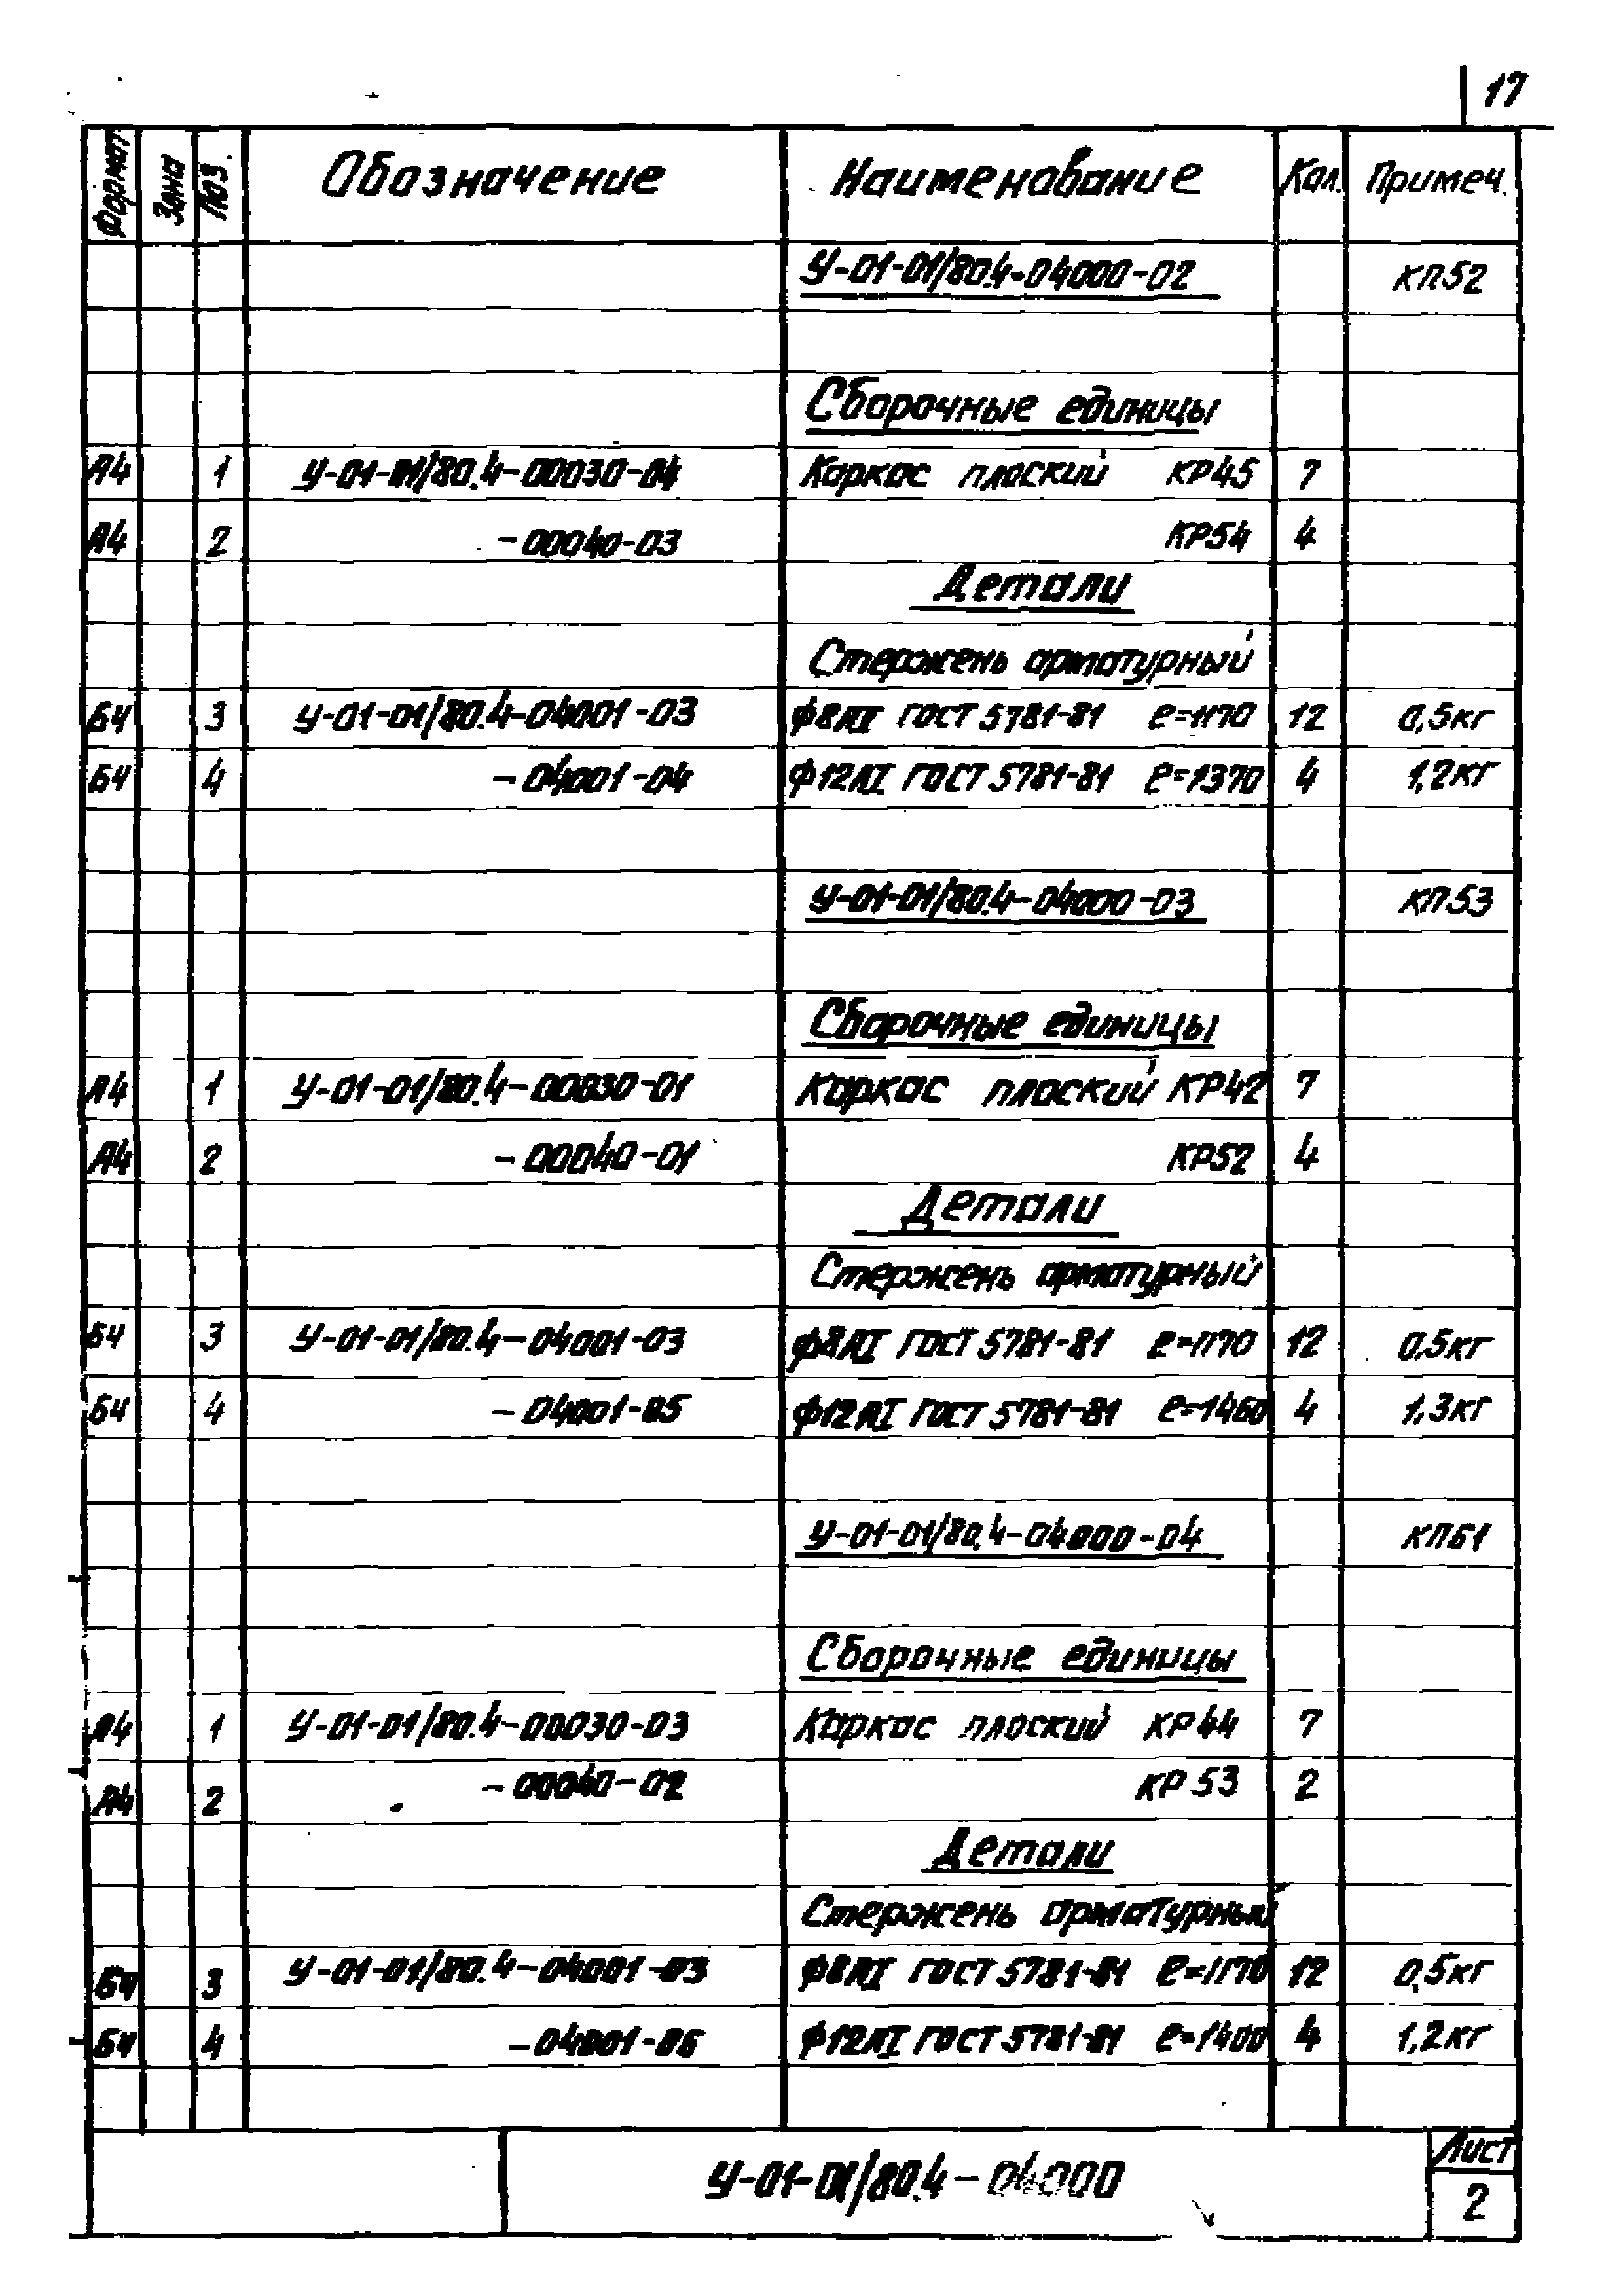 17
Формат Зона Поз. Обозначение Наименование Кол. Примеч.
У-01-01/80.4-04000-02 КП52
Сборочные единицы
А4 1 У-01-01/80.4-00030-04 Каркас плоский КР45 7
А4 2 -00040-03 КР54 4
Детали
Стержень арматурный
БЧ 3 У-01-01/80.4-04001-03 Ф8АI ГОСТ 5781-81 ℓ=1170 12 0,5кг
БЧ 4 -04001-04 Ф12АI ГОСТ 5781-81 ℓ=1370 4 1,2кг
У-01-01/80.4-04000-03 КП53
Сборочные единицы
А4 1 У-01-01/80.4-00030-01 Каркас плоский КР42 7
А4 2 -00040-01 КР52 4
Детали
Стержень арматурный
БЧ 3 У-01-01/80.4-04001-03 Ф8АI ГОСТ 5781-81 ℓ=1170 12 0,5кг
БЧ 4 -04001-05 Ф12АI ГОСТ 5781-81 ℓ=1460 4 1,3кг
У-01-01/80.4-04000-04 КП61
Сборочные единицы
А4 1 У-01-01/80.4-00030-03 Каркас плоский КР44 7
А4 2 -00040-02 КР53 2
Детали
Стержень арматурный
БЧ 3 У-01-01/80.4-04001-03 Ф8АI ГОСТ 5781-81 ℓ=1170 12 0,5кг
БЧ 4 -04001-06 Ф12АI ГОСТ 5781-81 ℓ=1400 4 1,2кг
У-01-01/80.4-04000 Лист
2